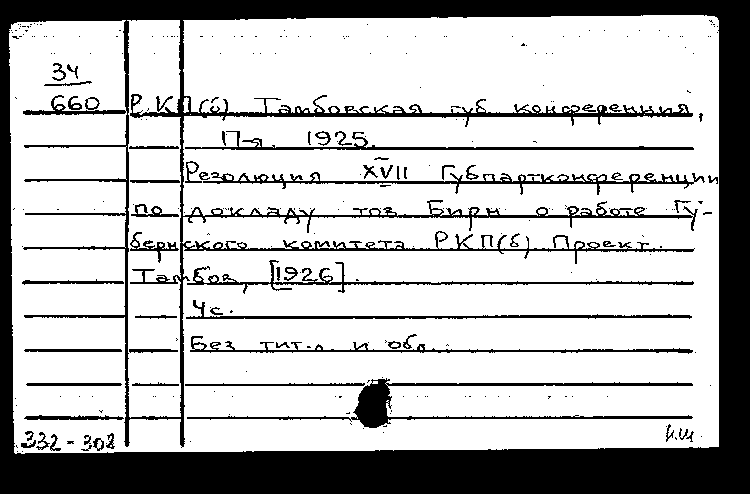 34
660 Р.КП(б) Тамбовская губ конференция,
П-я. 1925.
Резолюция XVII Губпартконференции
по докладу тов. Бирн о работе Гу-
бернского комитета РКП(б) Проект.
Тамбов, [1926].
4 с.
Без тит. л. и обл.
332-302